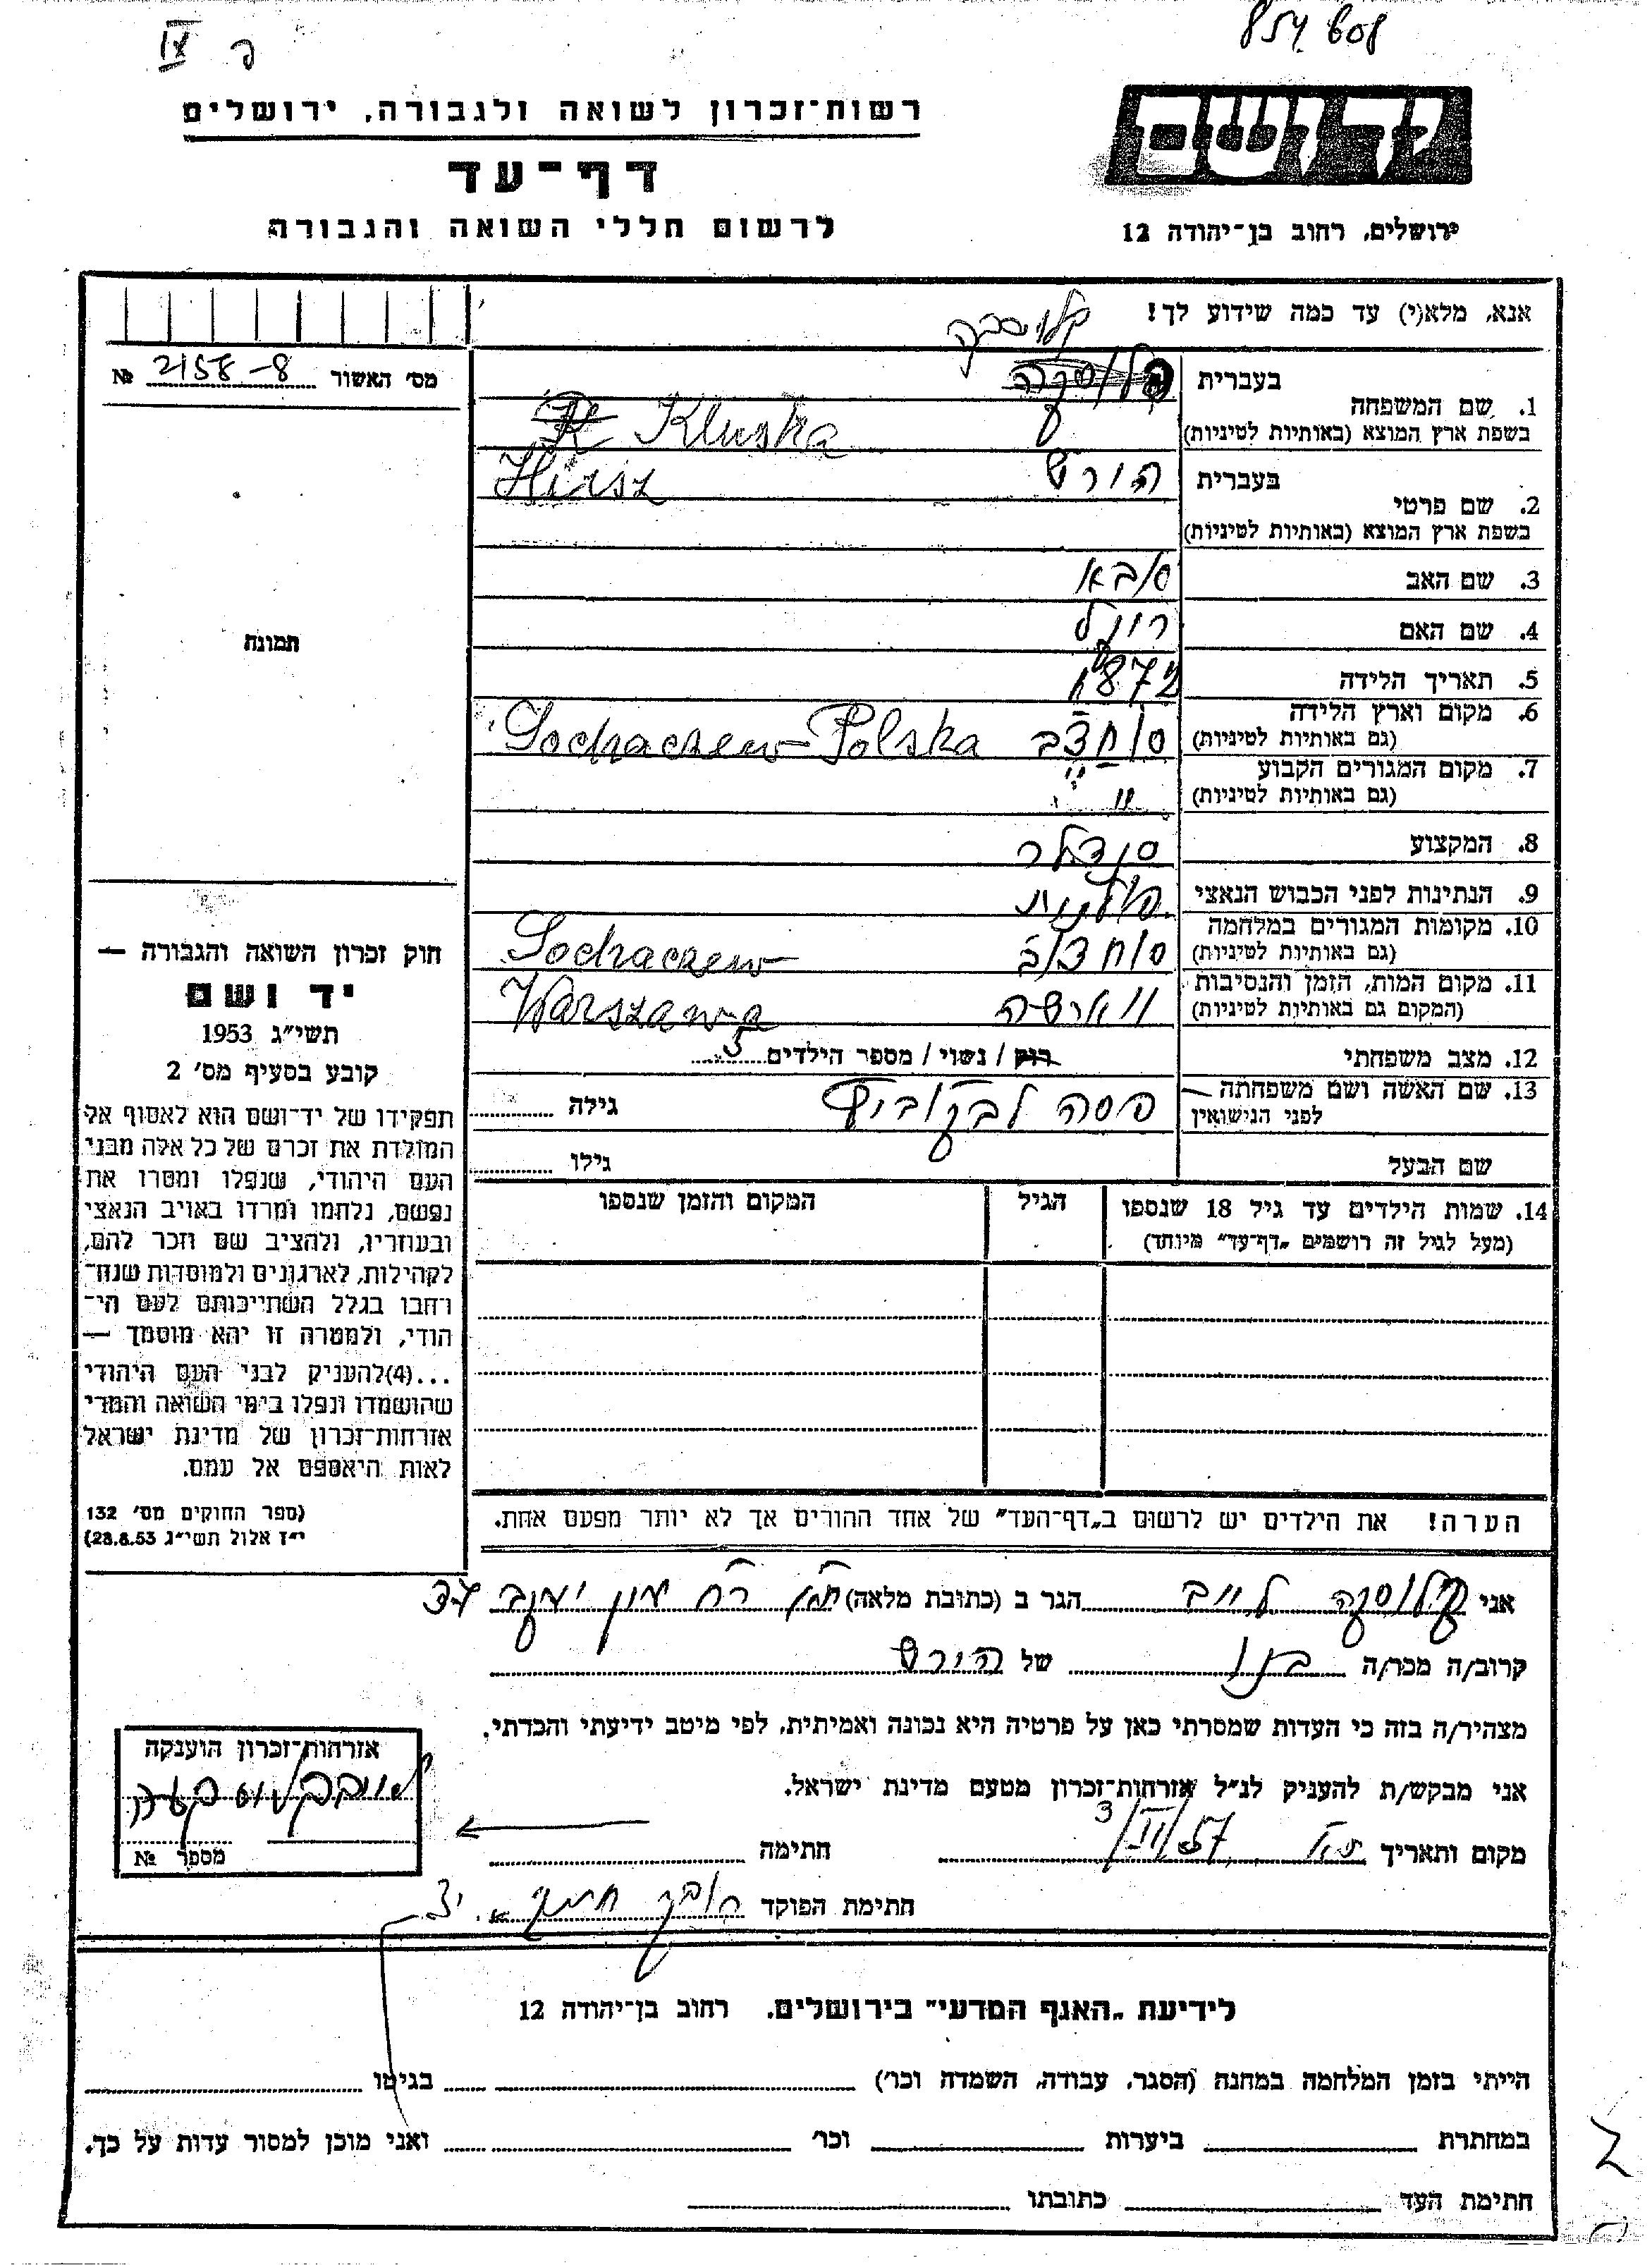 854 608
כ IX
ידושם
ירושלים, רחוב בן־יהודה 12
רשות־זכרון לשואה ולגבורה, ירושלים
דף־עד
לרשום חללי השואה והגבורה
אנא, מלא(י) עד כמה שידוע לך!
מס׳ האשור 2158-8 №
תמונה
חוק זכרון השואה והגבורה —
יד ושם
תשי״ג 1953
קובע בסעיף מס׳ 2
תפקידו של יד־ושם הוא לאסוף אל
המולדת את זכרם של כל אלה מבני
העם היהודי, שנפלו ומסרו את
נפשם, נלחמו ומרדו באויב הנאצי
ובעוזריו, ולהציב שם וזכר להם,
לקהילות, לארגונים ולמוסדות שנח־
רחבו בגלל השתייכותם לעם הי־
הודי, ולמטרה זו יהא מוסמך —
...(4)להעניק לבני העם היהודי
שהושמדו ונפלו בימי השואה והמרי
אזרחות־זכרון של מדינת ישראל
לאות היאספם אל עמם.
(ספר החוקים מס׳ 132
י״ז אלול תשי״ג 28.8.53)
בעברית קלוסקה
1. שם המשפחה
בשפת ארץ המוצא (באותיות לטיניות) Kluska
בעברית הירש Hirsz
2. שם פרטי
בשפת ארץ המוצא (באותיות לטיניות)
3. שם האב סאבא
4. שם האם
5. תאריך הלידה 1872
6. מקום וארץ הלידה
(גם באותיות לטיניות) Sochaczew-Polska
7. מקום המגורים הקבוע
(גם באותיות לטיניות) "
8. המקצוע סנדלר
9. הנתינות לפני הכבוש הנאצי פולנית
10. מקומות המגורים במלחמה
(גם באותיות לטיניות) Sochaczew
11. מקום המות, הזמן והנסיבות
(המקום גם באותיות לטיניות) ווארשה Warszawa
12. מצב משפחתי רווק / נשוי / מספר הילדים 5
13. שם האשה ושם משפחתה פסה לבקוביץ גילה
לפני הנישואין
שם הבעל גילו
14. שמות הילדים עד גיל 18 שנספו הגיל המקום והזמן שנספו
(מעל לגיל זה רושמים „דף־עד״ מיוחד)
הערה! את הילדים יש לרשום ב„דף־העד״ של אחד ההורים אך לא יותר מפעם אחת.
אני קלוסקה לייב הגר ב (כתובת מלאה) 37
קרוב/ה מכר/ה בנו של הירש
מצהיר/ה בזה כי העדות שמסרתי כאן על פרטיה היא נכונה ואמיתית, לפי מיטב ידיעתי והכרתי.
אני מבקש/ת להעניק לנ״ל אזרחות־זכרון מטעם מדינת ישראל.
מקום ותאריך ת״א חתימה
חתימת הפוקד
אזרחות־זכרון הוענקה
מספר №
לידיעת „האגף המדעי״ בירושלים, רחוב בן־יהודה 12
הייתי בזמן המלחמה במחנה (הסגר, עבודה, השמדה וכר׳) בגיטו
במחתרת ביערות וכר׳ ואני מוכן למסור עדות על כך.
חתימת העד כתובתו